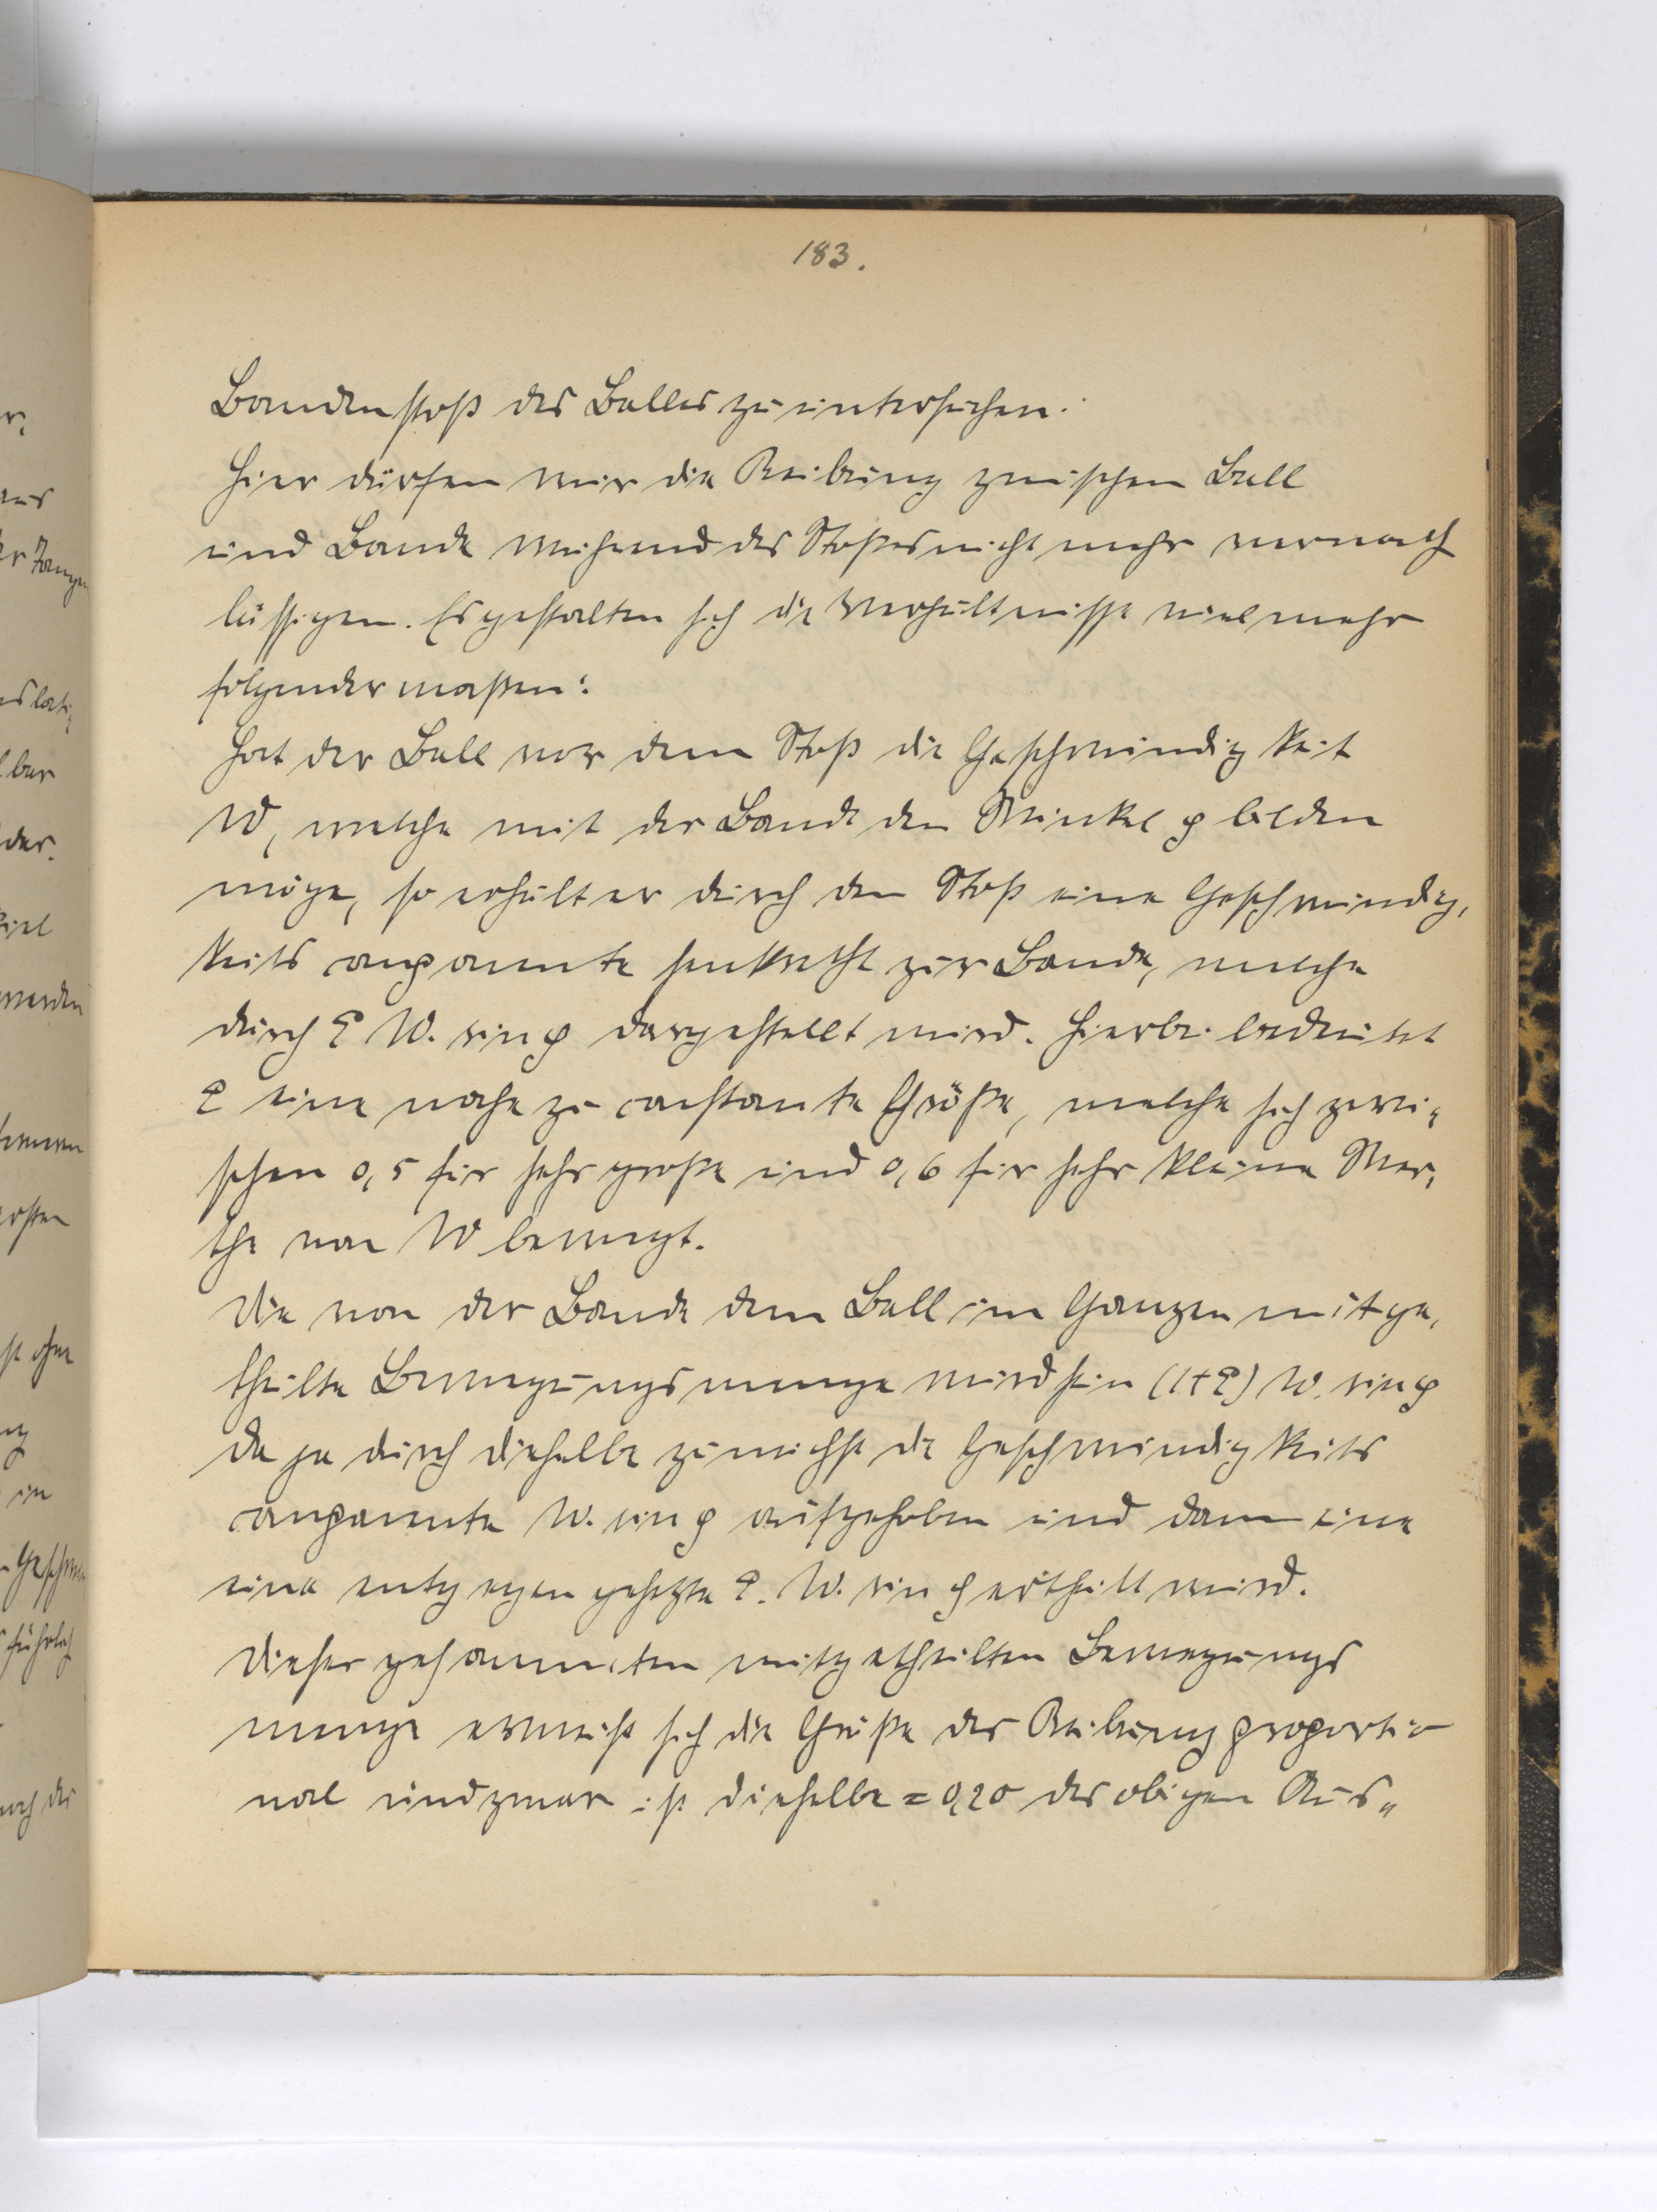 183.
Bandenstoß des Balles zu untersuchen.
Hier dürfen wir die Reibung zwischen Ball
und Bande während des Stoßes nicht mehr vernach
lässigen. Es gestalten sich die Verhältnisse vielmehr
folgendermaßen:
Hat der Ball vor dem Stoß die Geschwindigkeit
W, welche mit der Bande den Winkel φ bilden
möge, so erhält er durch den Stoß eine Geschwindig,
keits componente senkrecht zur Bande, welche
durch ε W. sin φ dargestellt wird. Hierbei bedeutet
ε eine nahe zu constante Größe, welche sich zwi„
schen 0,5 für sehr große und 0,6 für sehr kleine Wer,
the von W bewegt.
Die von der Bande dem Ball im Ganzen mitge,
theilte Bewegungsmenge wird sein (1+ε) W. sin φ
da ja durch dieselbe zunächst die Geschwindigkeits
componente W. sin φ aufgehoben und dann eine
eine entgegengesetzte ε. W. sin φ ertheilt wird.
Dieser gesammten mitgetheilten Bewegungs
menge erweist sich die Größe der Reibung proportio
nal und zwar ist dieselbe = 0,20 des obigen Aus„